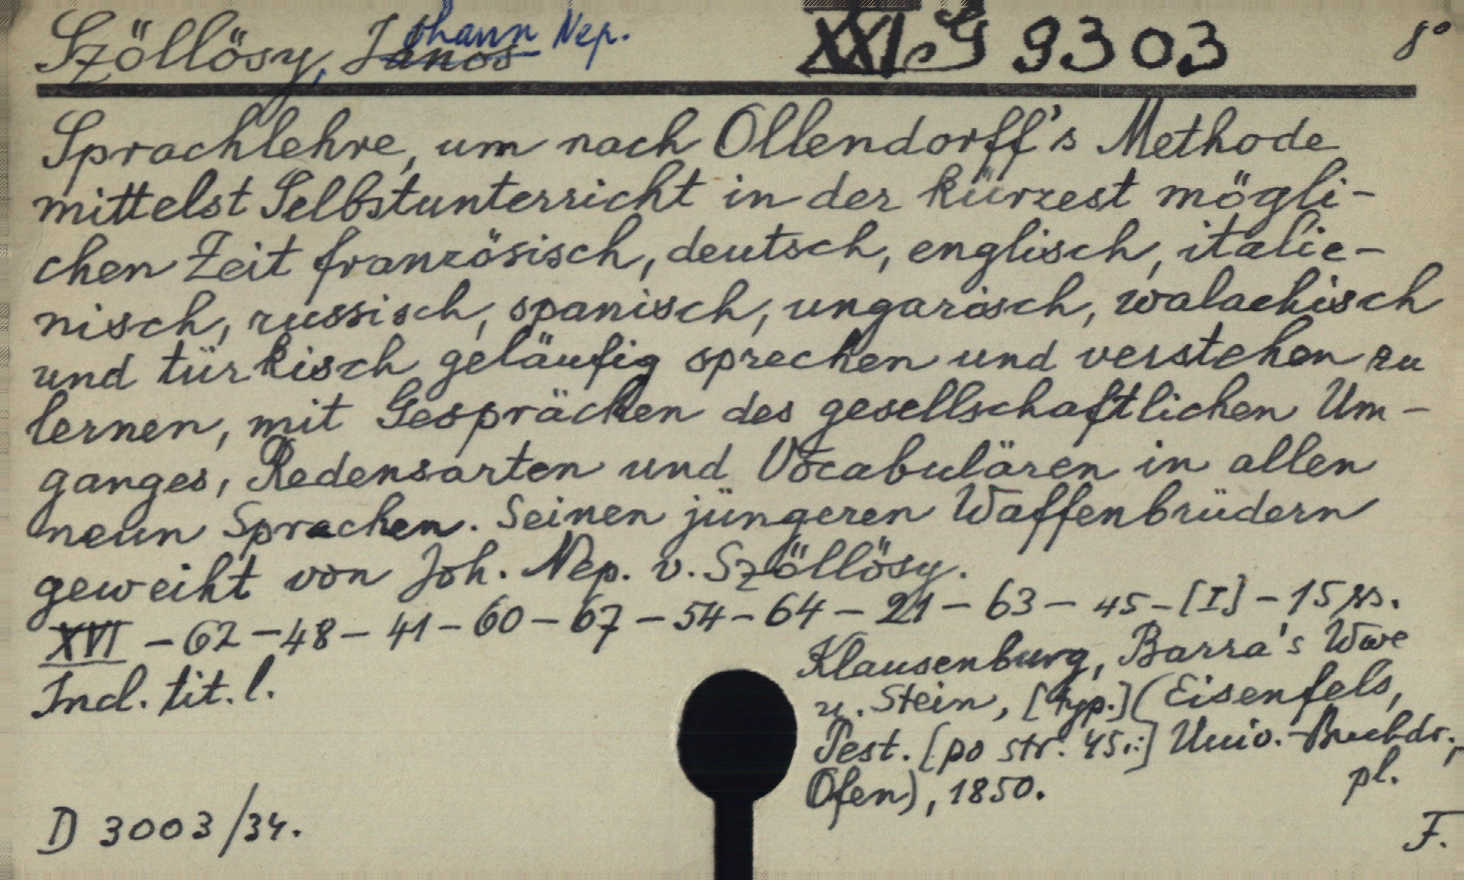 Szöllösy, Johann Nep. XXI G 9303 8°
Sprachlehre, um nach Ollendorff's Methode
mittelst Selbstunterricht in der kürzest mögli-
chen Zeit französisch, deutsch, englisch, italie-
nisch, russisch, spanisch, ungarisch, walachisch
und türkisch geläufig sprechen und verstehen zu
lernen, mit Gesprächen des gesellschaftlichen Um-
ganges, Redensarten und Vocabulären in allen
neun Sprachen. Seinen jüngeren Waffenbrüdern
geweiht von Joh. Nep. v. Szöllösy.
XVI - 62 - 48 - 41 - 60 - 67 - 54 - 64 - 21 - 63 - 45 - [I] - 15 ss.
Incl. tit. l.
Klausenburg, Barra's Wwe
u. Stein, [typ.] (Eisenfels,
Pest. [po str. 45:] Univ.-Buchdr.,
Ofen), 1850. pl.
D 3003/34. F.